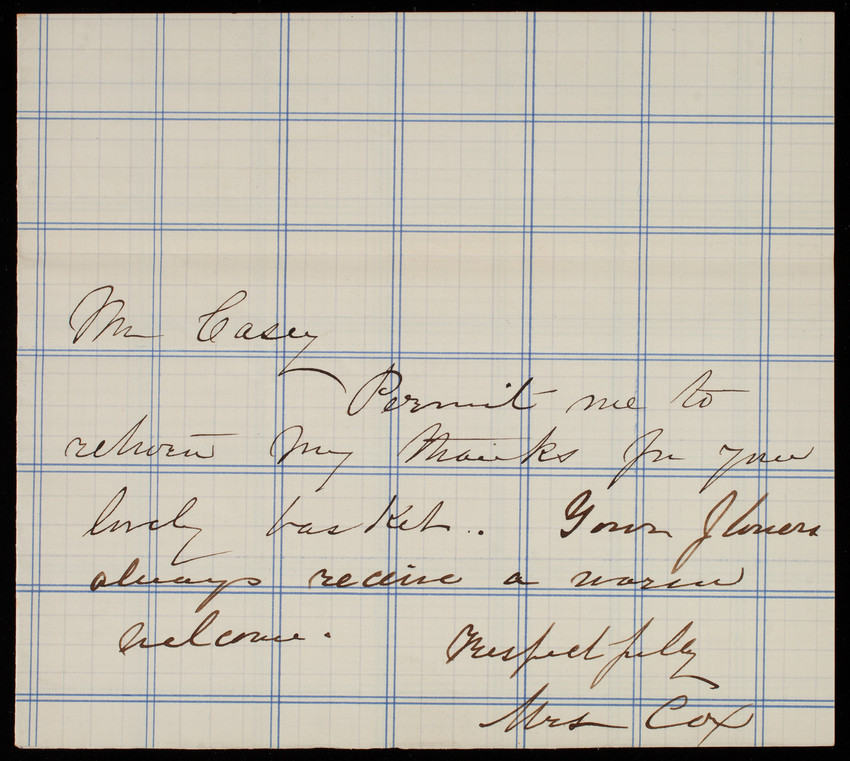 Mr Casey
Permit me to
return my thanks for your
lovely basket. Your flowers
always receive a warm
welcome.
Respectfully
Mrs Cox